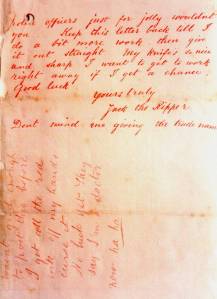 police officers just for jolly wouldnt
you Keep this letter back till I
do a bit more work then give
it out straight My knife's so nice
and sharp I want to get to work
right away if I get a chance.
Good luck.
yours truly
Jack the Ripper
Dont mind me giving the trade name
to post this before
I got all the red
ink off my hands
curse it.
No luck yet They
say I'm a doctor
now ha ha